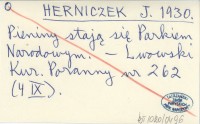 HERNICZEK J. 1930.
Pieniny stają się Parkiem
Narodowym. – Lwowski
Kur. Poranny nr 262
(4 IX).